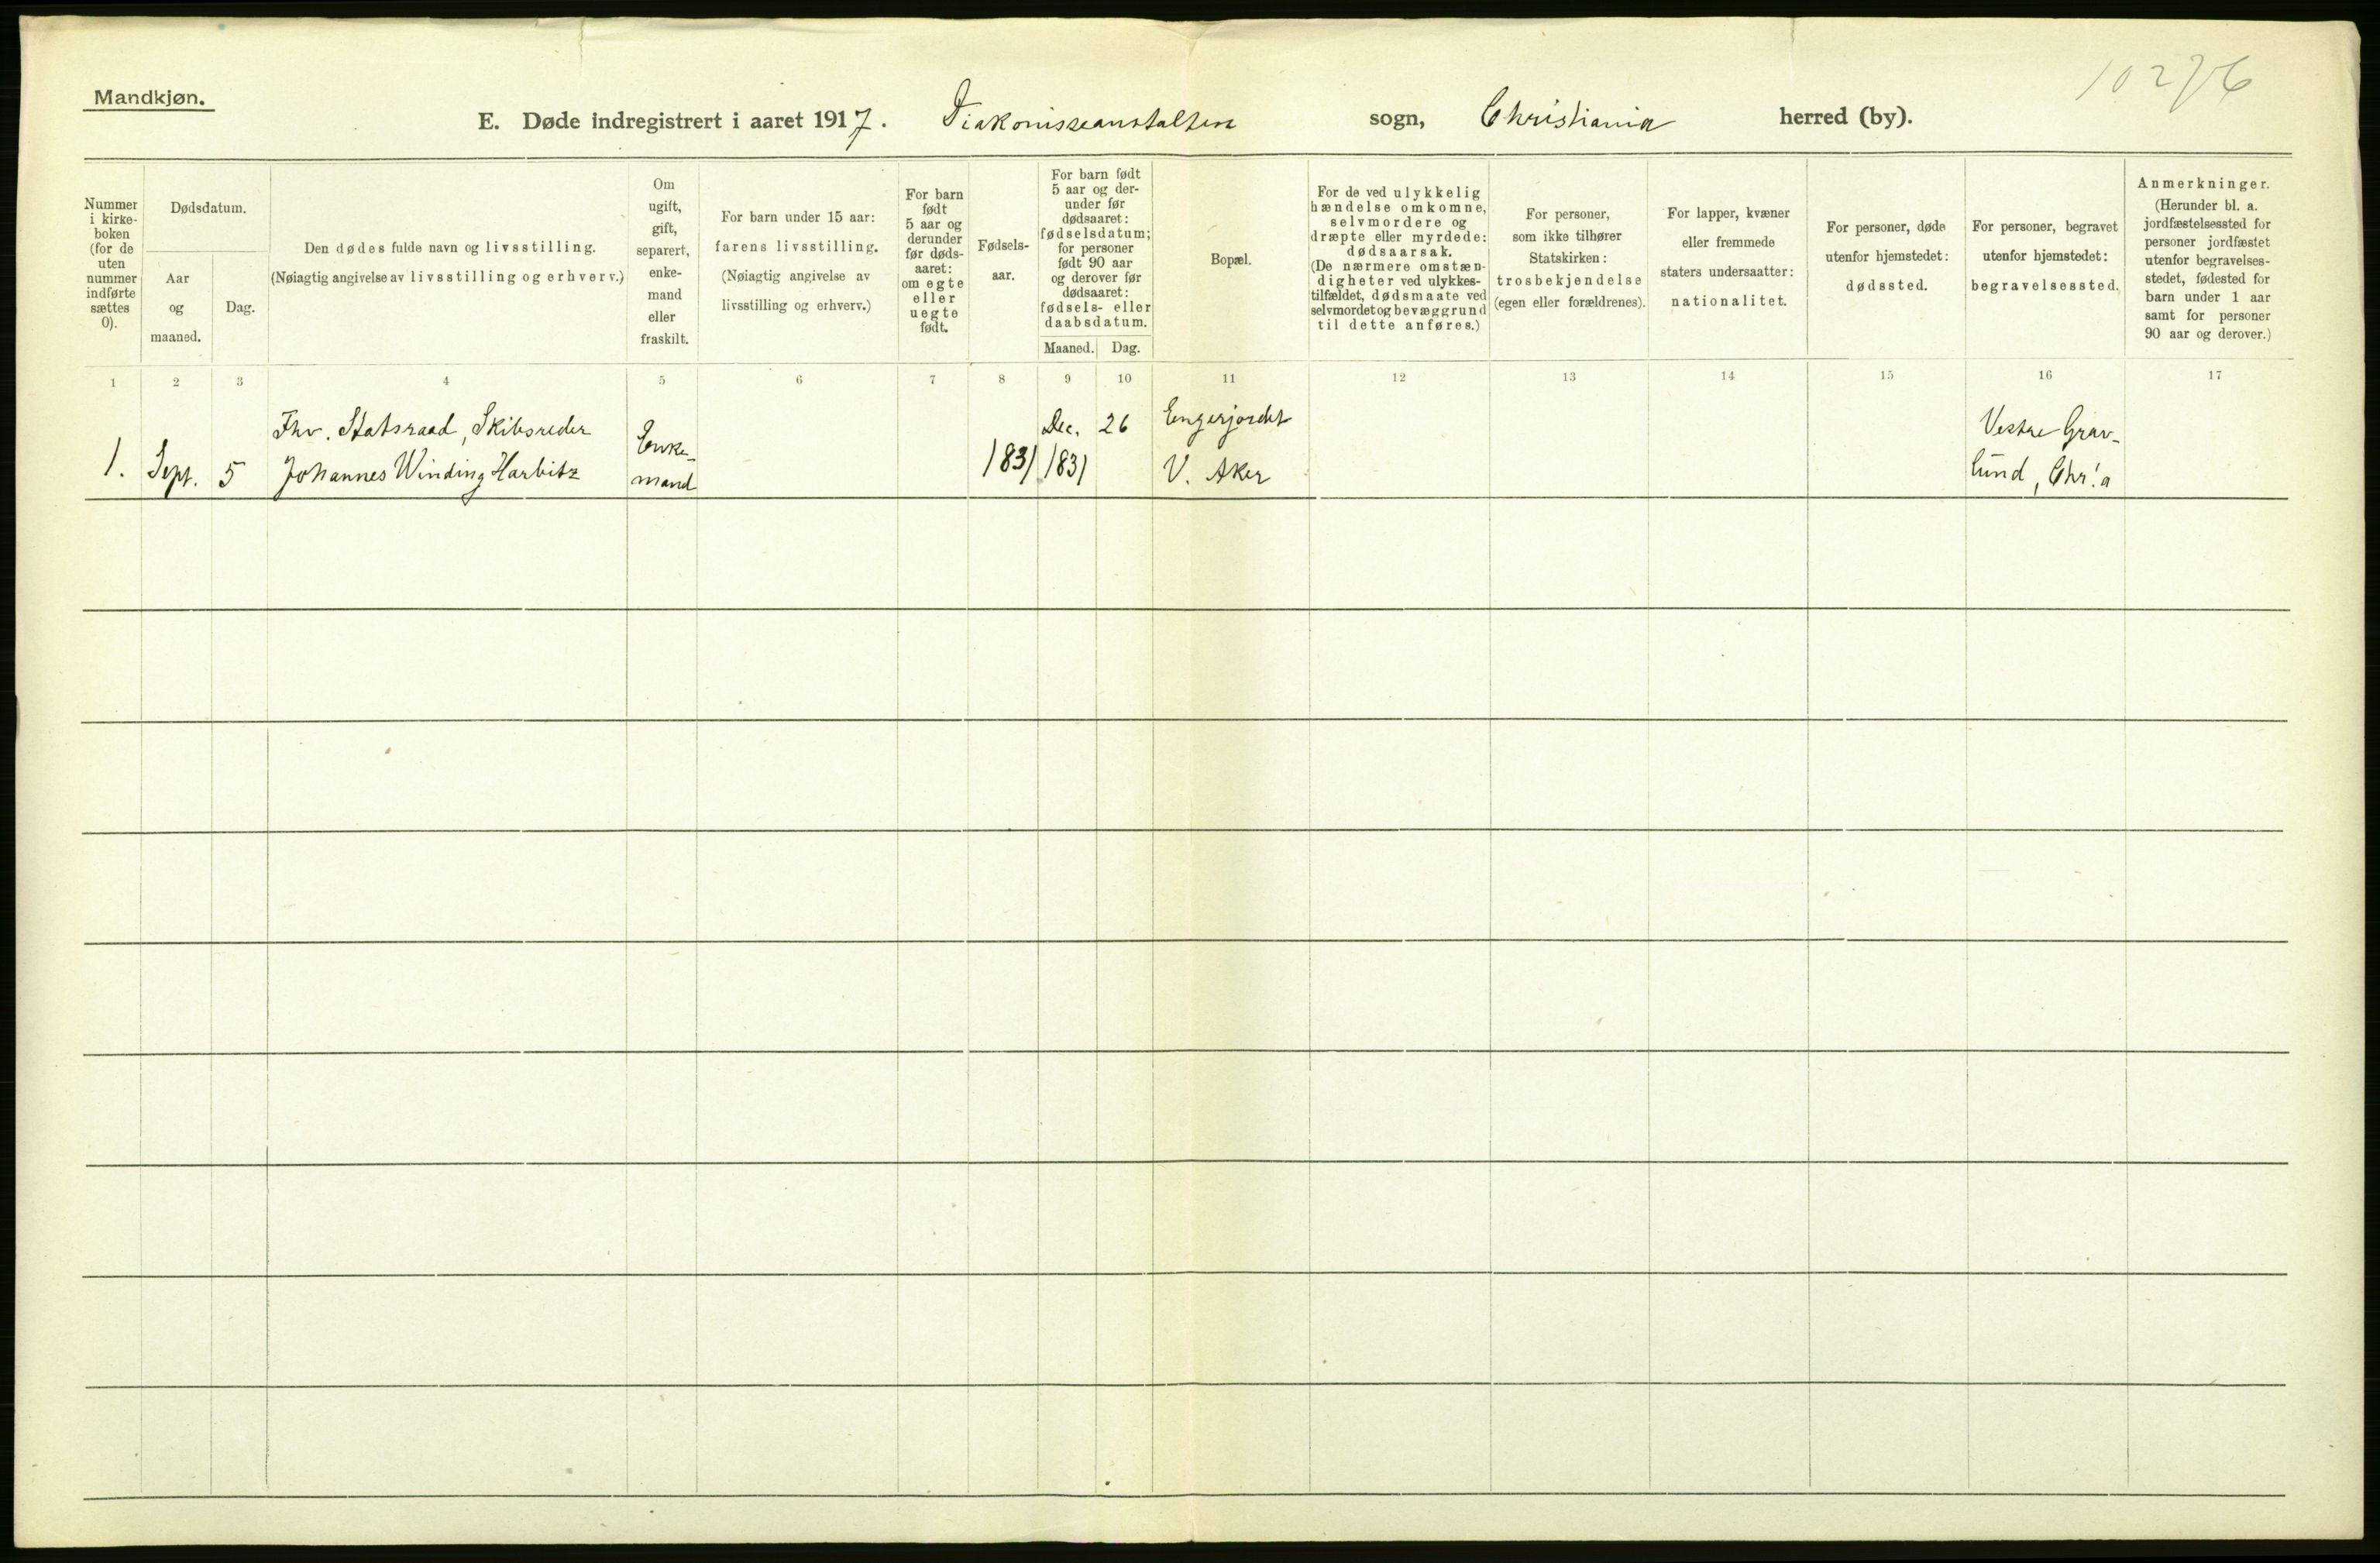 Mandkjøn.
10276
E. Døde indregistrert i aaret 1917. Diakonisseanstalten sogn, Christiania herred (by).
Nummer
i kirke-
boken
(for de
uten
nummer
indførte
sættes
0).
Dødsdatum.
Aar
og
maaned.
Dag.
Den dødes fulde navn og livsstilling.
(Nøiagtig angivelse av livsstilling og erhverv.)
Om
ugift,
gift,
separert,
enke-
mand
eller
fraskilt.
For barn under 15 aar:
farens livsstilling.
(Nøiagtig angivelse av
livsstilling og erhverv.)
For barn
født
5 aar og
derunder
før døds-
aaret:
om egte
eller
uegte
født.
Fødsels-
aar.
For barn født
5 aar og der-
under før
dødsaaret:
fødselsdatum;
for personer
født 90 aar
og derover før
dødsaaret:
fødsels- eller
daabsdatum.
Maaned. Dag.
Bopæl.
For de ved ulykkelig
hændelse omkomne,
selvmordere og
dræpte eller myrdede:
dødsaarsak.
(De nærmere omstæn-
digheter ved ulykkes-
tilfældet, dødsmaate ved
selvmordet og bevæggrund
til dette anføres.)
For personer,
som ikke tilhører
Statskirken:
trosbekjendelse
(egen eller forældrenes).
For lapper, kvæner
eller fremmede
staters undersaatter:
nationalitet.
For personer, døde
utenfor hjemstedet:
dødssted.
For personer, begravet
utenfor hjemstedet:
begravelsessted.
Anmerkninger.
(Herunder bl. a.
jordfæstelsessted for
personer jordfæstet
utenfor begravelses-
stedet, fødested for
barn under 1 aar
samt for personer
90 aar og derover.)
1 2 3 4 5 6 7 8 9 10 11 12 13 14 15 16 17
1. Sept. 5
Fhv. Statsraad, Skibsreder
Johannes Winding Harbitz
Enke-
mand
1831
Dec. 26
1831
Engerjordet
V. Aker
Vestre Grav-
lund, Chr!a